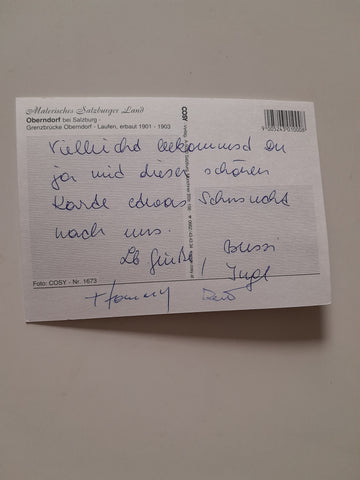 Malerisches Salzburger Land
Oberndorf bei Salzburg -
Grenzbrücke Oberndorf - Laufen, erbaut 1901 - 1903
COSY
9 005243 010008
Vielleicht bekommsd du
ja mid dieser schönen
Karde edwas Sehnsucht
nach uns.
Lb Grüße
Bussi
Inge
+ Tommy
Foto: COSY · Nr. 1673